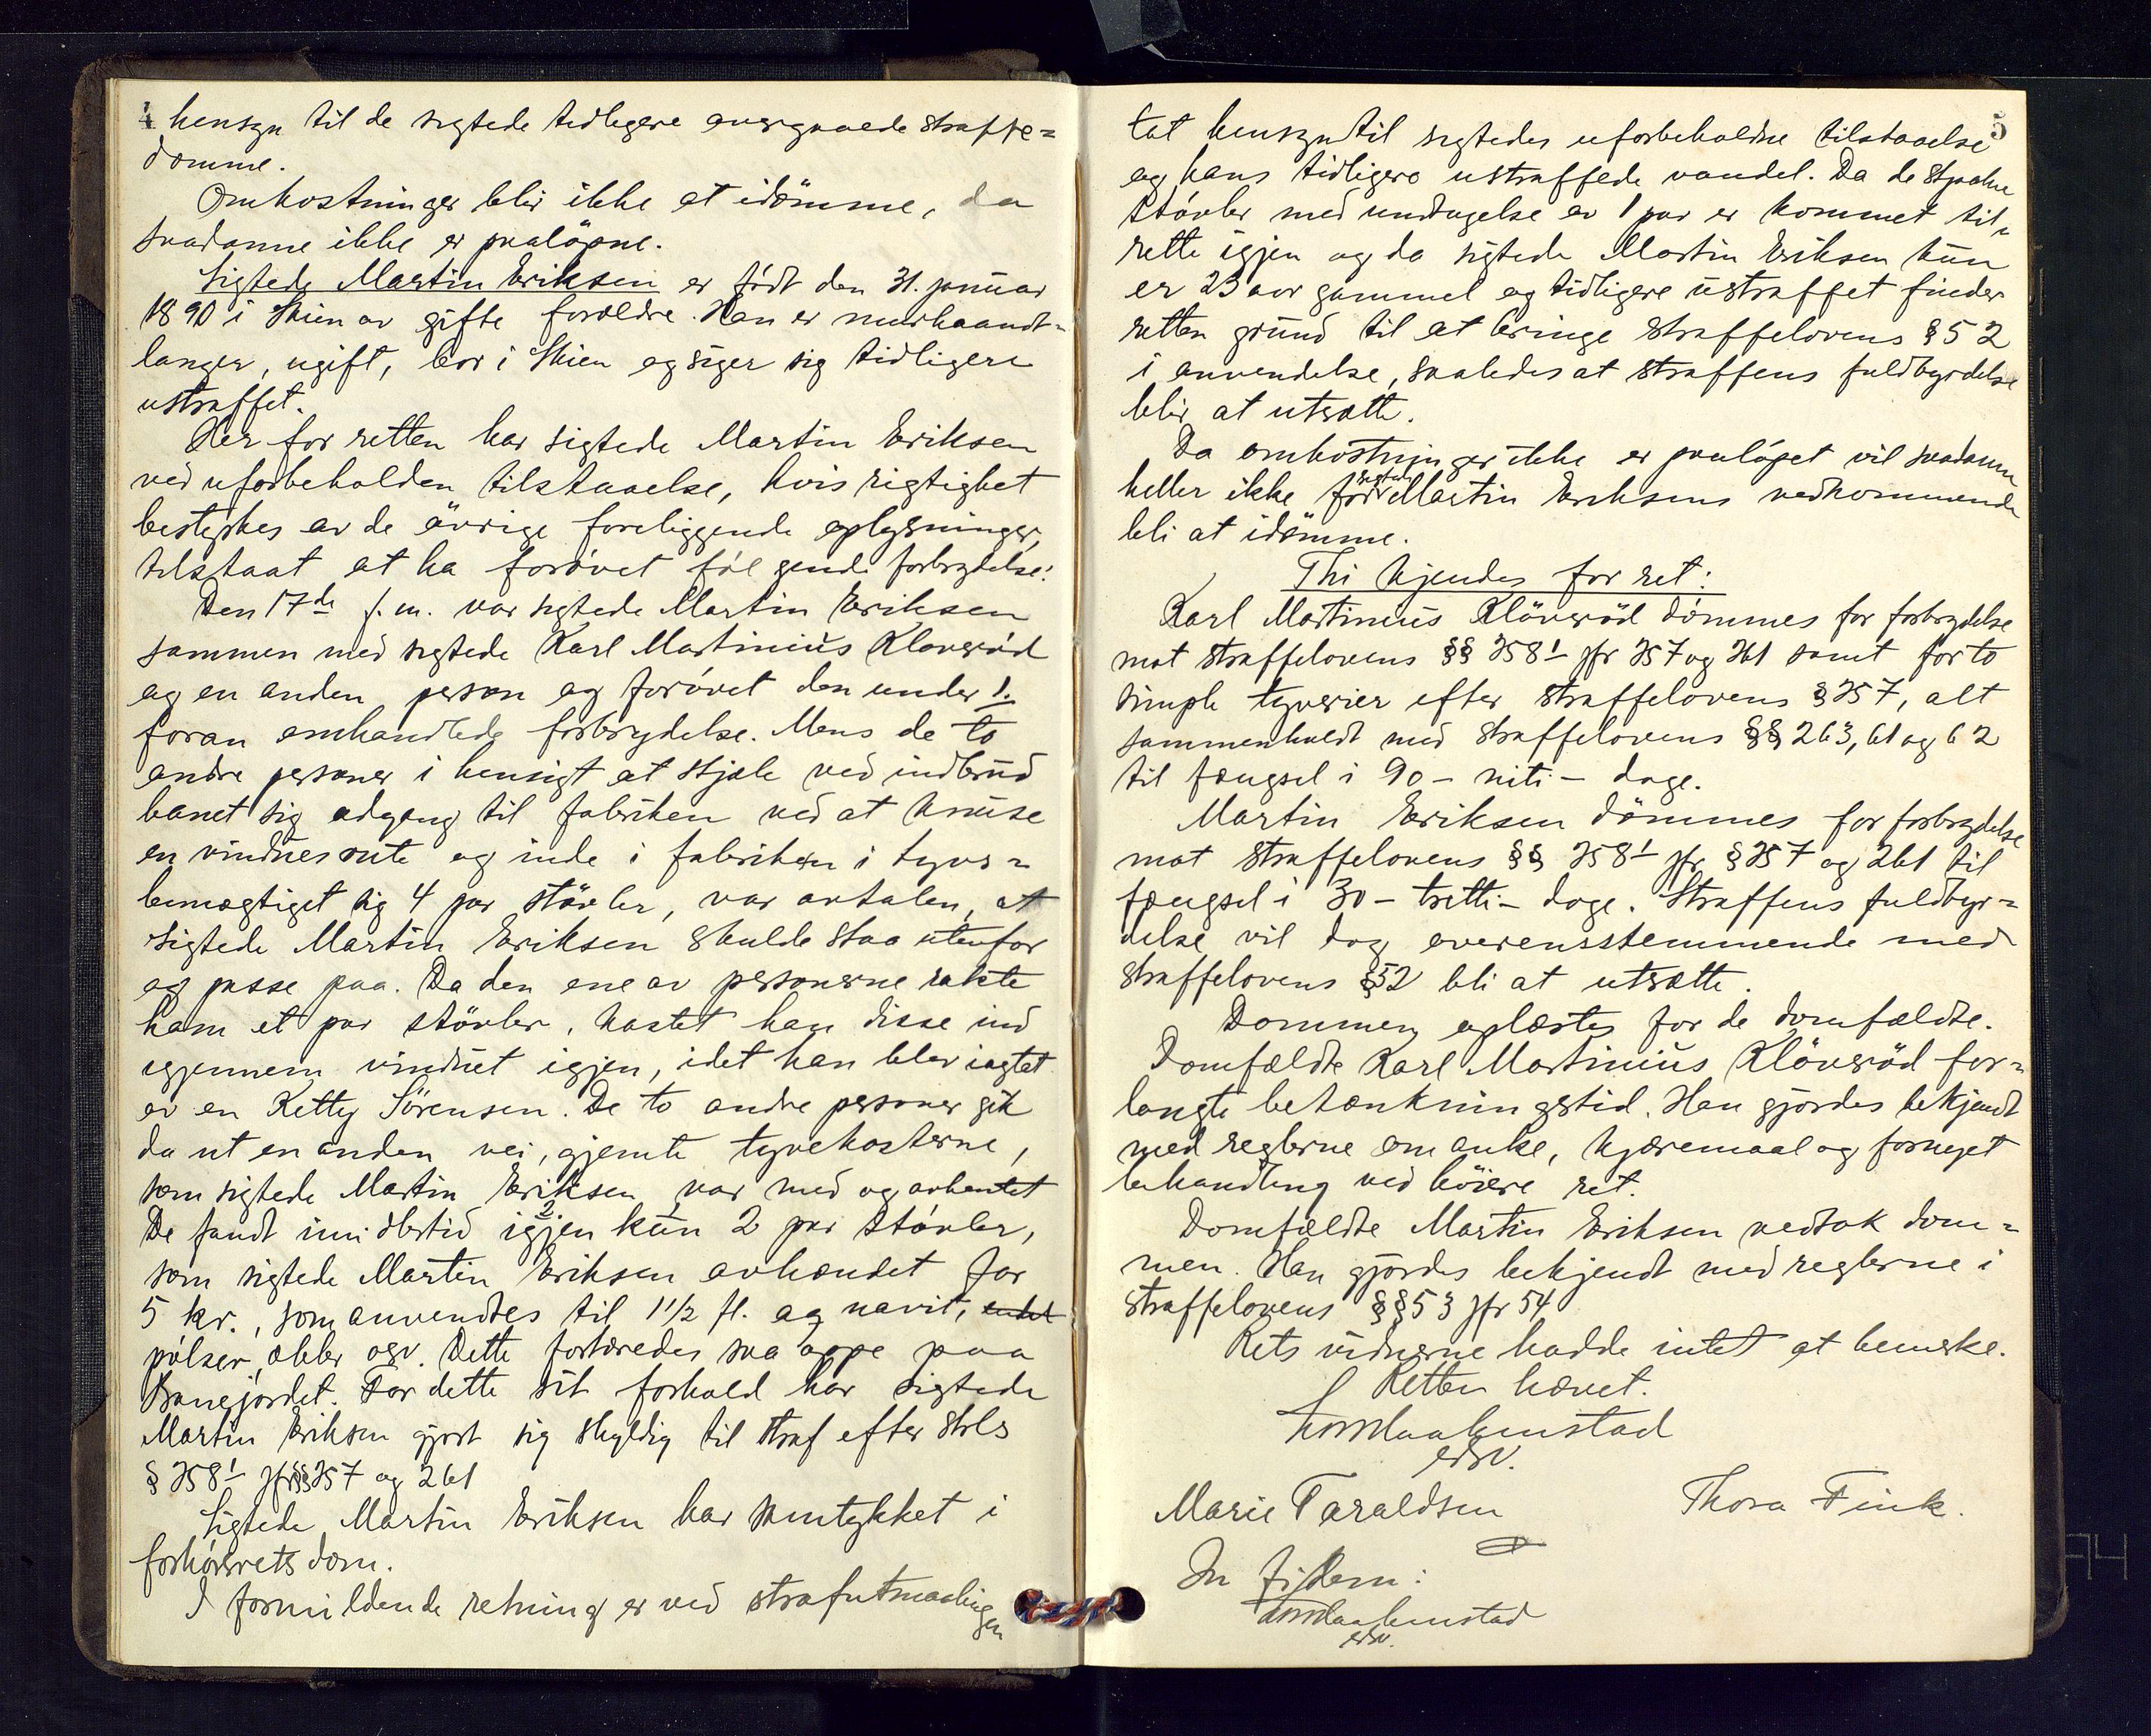 4
hensyn til de sigtede tidligere overgaaede straffe=
domme.
Omkostninger blir ikke at idömme, da
saadanne ikke er paaløpne.
Sigtede Martin Eriksen er født den 31. januar
1890 i Skien av gifte forældre. Han er murhaandt=
langer, ugift, bor i Skien og siger sig tidligere
ustraffet.
Her for retten har sigtede Martin Eriksen
ved uforbeholden tilstaaelse, hvis rigtighet
bestyrkes av de övrige foreliggende oplysninger,
tilstaat at ha forövet fölgende forbrydelse:
Den 17de f.m. var sigtede Martin Eriksen
sammen med sigtede Karl Martinius Klöverød
og en anden person og forövet den under 1.
foran omhandlede forbrydelse. Mens de to
andre personer i hensigt at stjæle ved indbrud
banet sig adgang til fabriken ved at knuse
en vindusrute og inde i fabriken i tyvs=
bemægtiget sig 4 par stövler, var avtalen, at
sigtede Martin Eriksen skulde staa utenfor
og passe paa. Da den ene av personerne rakte
ham et par stövler, kastet han disse ind
igjennem vinduet igjen, idet han blev iagtat
av en Ketty Sörensen. De to andre personer gik
da ut en anden vei, gjemte tyvekosterne,
som sigtede Martin Eriksen var med og avhentet
De fandt imidlertid igjen kun 2 par stövler,
som sigtede Martin Eriksen avhændet for
5 kr., som anvendtes til 1 1/2 fl. aqvavit,
pølser, æbler osv. Dette fortæredes saa oppe paa
Banejordet. For dette sit forhold har sigtede
Martin Eriksen gjort sig skyldig til straf efter strls
§ 258 1 jfr §§ 257 og 261
Sigtede Martin Eriksen har samtykket i
forhörsretsdom.
I formildende retning er ved strafutmaalingen
5
tat hensyn til sigtedes uforbeholdne tilstaaelse
og hans tidligere ustraffede vandel. Da de stjaalne
stövler med undtagelse av 1 par er kommet til=
rette igjen og da sigtede Martin Eriksen kun
er 23 aar gammel og tidligere ustraffet finder
retten grund til at bringe straffelovens § 52
i anvendelse, saaledes at straffens fuldbyrdelse
blir at utsætte.
Da omkostninger ikke er paaløpet vil saadanne
heller ikke for sigtede Martin Eriksens vedkommende
bli at idömme.
Thi kjendes for ret:
Karl Martinius Klöverød dömmes for forbrydelse
mot straffelovens §§ 258 1 jfr 257 og 261 samt for to
simple tyverier efter straffelovens § 257, alt
sammenholdt med straffelovens §§ 263, 61 og 62
til fængsel i 90 - niti - dage.
Martin Eriksen dömmes for forbrydelse
mot straffelovens §§ 258 1 jfr § 257 og 261 til
fængsel i 30 - tretti - dage. Straffens fuldbyr=
delse vil dog overensstemmende med
straffelovens § 52 bli at utsætte.
Dommen oplæstes for de domfældte.
Domfældte Karl Martinius Klöverød for=
langte betænkningstid. Han gjordes bekjendt
med reglerne om anke, kjæremaal og fornyet
behandling ved höiere ret.
Domfældte Martin Eriksen vedtok dom=
men. Han gjordes bekjendt med reglerne i
straffelovens §§ 53 jfr 54
Retsvidnerne hadde intet at bemerke.
Retten hævet.
edsv.
Marie Taraldsen Thora Fink.
In fidem:
edsv.